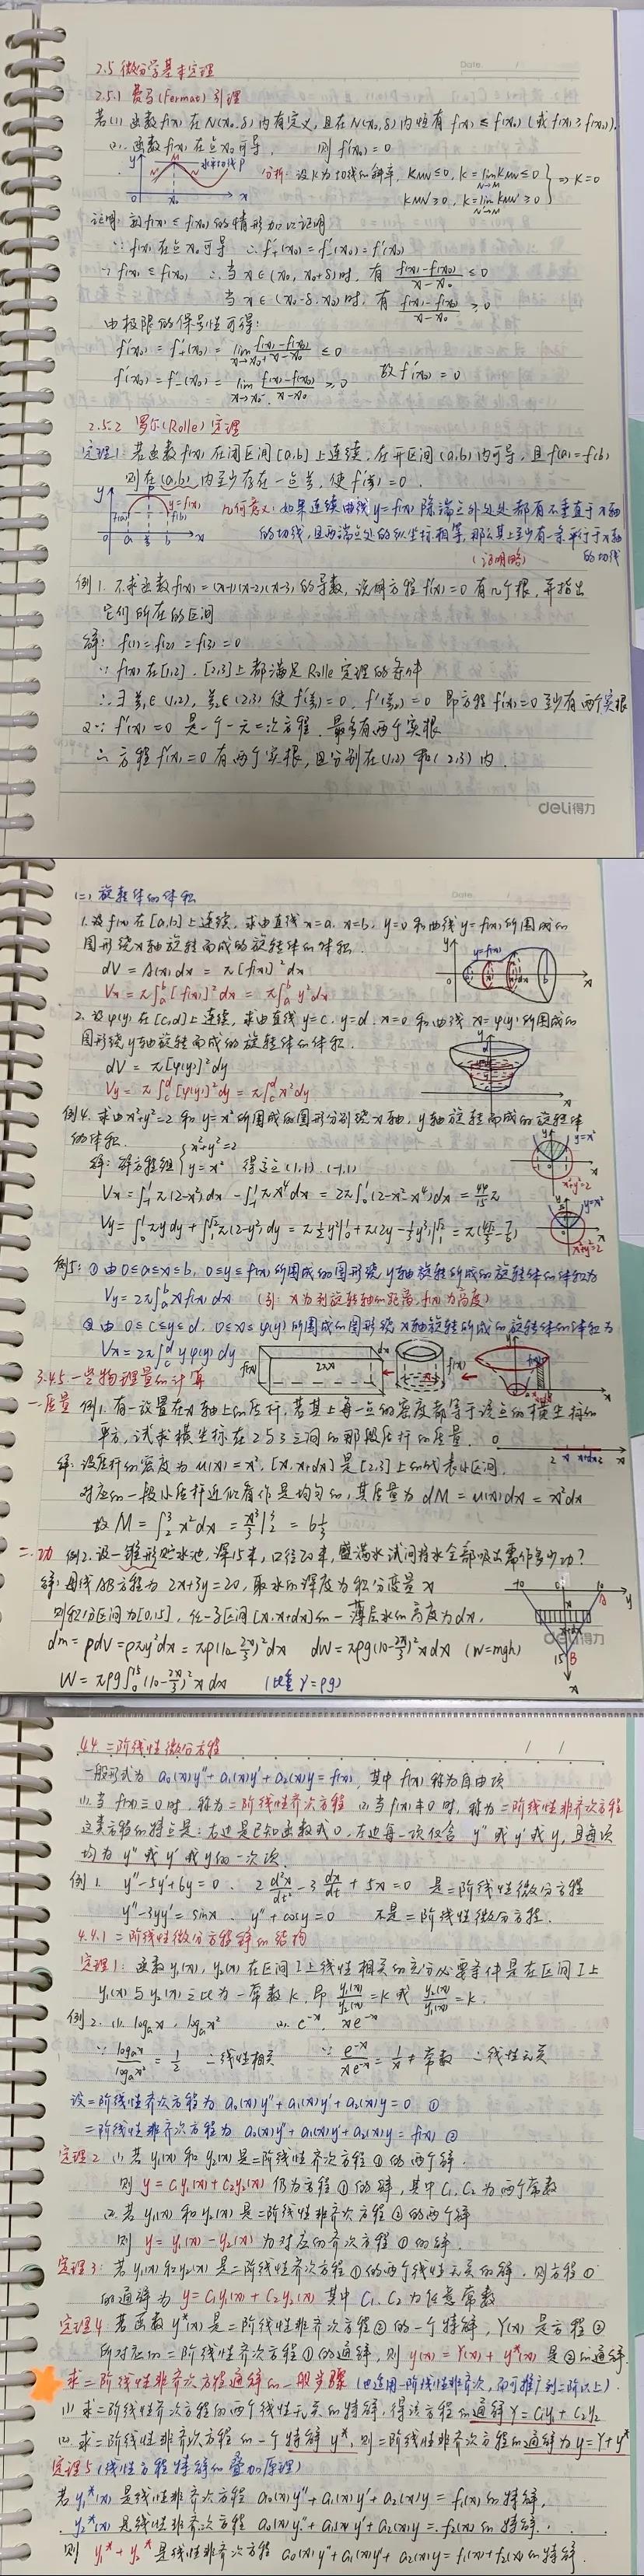 Date
2.5 微分学基本定理
2.5.1 费马(Fermat)引理
若(1) 函数f(x)在N(x₀,δ)内有定义,且在N(x₀,δ)内恒有 f(x)≤f(x₀) (或f(x)≥f(x₀)).
(2) 函数f(x)在点x₀可导, 则f'(x₀)=0
水平切线
分析: 设K为切线的斜率, K_MN≤0, K=lim_{N→M} K_MN≤0
K_MN≥0, K=lim_{N→M} K_MN≥0 } ⇒ K=0
证明: 就f(x)≤f(x₀)的情形加以证明
∵ f(x)在点x₀可导 ∴ f'₊(x₀)=f'₋(x₀)=f'(x₀)
∵ f(x)≤f(x₀) ∴ 当x∈(x₀,x₀+δ)时, 有 (f(x)-f(x₀))/(x-x₀) ≤0
当x∈(x₀-δ,x₀)时, 有 (f(x)-f(x₀))/(x-x₀) ≥0
由极限的保号性可得:
f'(x₀)=f'₊(x₀)= lim_{x→x₀⁺} (f(x)-f(x₀))/(x-x₀) ≤0
f'(x₀)=f'₋(x₀)= lim_{x→x₀⁻} (f(x)-f(x₀))/(x-x₀) ≥0 故f'(x₀)=0
2.5.2 罗尔(Rolle)定理
定理1: 若函数f(x)在闭区间[a,b]上连续, 在开区间(a,b)内可导, 且f(a)=f(b)
则在(a,b)内至少存在一点ξ, 使f'(ξ)=0.
y=f(x)
f(a) f(b)
0 a ξ b x
几何意义: 如果连续曲线y=f(x)除端点外处处都有不垂直于x轴
的切线, 且两端点处的纵坐标相等, 那么其上至少有一条平行于x轴
的切线
(证明略)
例1. 不求函数f(x)=(x-1)(x-2)(x-3)的导数, 说明方程f'(x)=0有几个根, 并指出
它们所在的区间
解: f(1)=f(2)=f(3)=0
∵ f(x)在[1,2], [2,3]上都满足Rolle定理的条件
∴ ∃ξ₁∈(1,2), ξ₂∈(2,3) 使f'(ξ₁)=0, f'(ξ₂)=0 即方程f'(x)=0至少有两个实根
又∵ f'(x)=0 是一个一元二次方程, 最多有两个实根
∴ 方程f'(x)=0有两个实根, 且分别在(1,2)和(2,3)内.
deli得力
Date
(二) 旋转体的体积
1. 设f(x)在[a,b]上连续, 求由直线x=a, x=b, y=0和曲线y=f(x)所围成的
图形绕x轴旋转而成的旋转体的体积.
y=f(x)
dV=A(x)dx=π[f(x)]²dx
Vx=π∫_a^b [f(x)]²dx=π∫_a^b y²dx
2. 设φ(y)在[c,d]上连续, 求由直线y=c, y=d, x=0和曲线x=φ(y)所围成的
图形绕y轴旋转而成的旋转体的体积.
dV=π[φ(y)]²dy
Vy=π∫_c^d [φ(y)]²dy=π∫_c^d x²dy
例4. 求由x²+y²=2和y=x²所围成的图形分别绕x轴, y轴旋转而成的旋转体
的体积.
解: 解方程组 { x²+y²=2 y=x² 得交点(1,1), (-1,1)
y=x²
x²+y²=2
Vx=∫₋₁¹π(2-x²)dx-∫₋₁¹πx⁴dx=2π∫₀¹(2-x²-x⁴)dx=44/15π
Vy=∫₀¹πydy+∫₁^√2π(2-y²)dy=π½y²|₀¹+π(2y-⅓y³)|₁^√2=π(4√2/3-7/6)
y=x²
x²+y²=2
例5: ① 由0≤a≤x≤b, 0≤y≤f(x)所围成的图形绕y轴旋转所成的旋转体的体积为
Vy=2π∫_a^b xf(x)dx (引: x为到旋转轴的距离, f(x)为高度)
② 由0≤c≤y≤d, 0≤x≤φ(y)所围成的图形绕x轴旋转所成的旋转体的体积为
Vx=2π∫_c^d yφ(y)dy
f(x) 2πx dx f(x)
3.4.5 一些物理量的计算
一. 质量 例1. 有一放置在x轴上的质杆, 若其上每一点的密度都等于该点的横坐标的
平方, 试求横坐标在2与3之间的那段质杆的质量.
0 2 x x+dx 3 x
解: 设质杆的密度为u(x)=x², [x,x+dx]是[2,3]上的代表小区间,
对应的一段小质杆近似看作是均匀的, 其质量为dM=u(x)dx=x²dx
故M=∫₂³x²dx=x³/3|₂³=6⅓
二. 功 例2. 设一锥形贮水池, 深15米, 口径20米, 盛满水试问将水全部吸出需作多少功?
解: 母线AB方程为2x+3y=20, 取水的深度为积分变量x
则积分区间为[0,15], 任一子区间[x,x+dx]的一薄层水的高度为dx,
dm=ρdV=ρπy²dx=πρ(10-2x/3)²dx dW=πρg(10-2x/3)²xdx (W=mgh)
W=πρg∫₀¹⁵(10-2x/3)²xdx (比重γ=ρg)
deli得力
4.4 二阶线性微分方程
一般形式为 a₀(x)y"+a₁(x)y'+a₂(x)y=f(x), 其中f(x)称为自由项
(1) 当f(x)≡0时, 称为二阶线性齐次方程 (2) 当f(x)≢0时, 称为二阶线性非齐次方程
这类方程的特点是: 右边是已知函数或0, 左边每一项仅含 y"或y'或y, 且每项
均为y"或y'或y的一次项
例1. y"-5y'+6y=0, 2 d²x/dt²-3 dx/dt+5x=0 是二阶线性微分方程
y"-3yy'=sinx, y"+cosy=0 不是二阶线性微分方程.
4.4.1 二阶线性微分方程解的结构
定理1: 函数y₁(x), y₂(x)在区间I上线性相关的充分必要条件是在区间I上
y₁(x)与y₂(x)之比为一常数k, 即 y₁(x)/y₂(x)=k 或 y₂(x)/y₁(x)=k.
例2. (1) logₐx, logₐx² (2) e⁻ˣ, xe⁻ˣ
∵ logₐx/logₐx²=1/2 ∴ 线性相关 ∵ e⁻ˣ/xe⁻ˣ=1/x≠常数 ∴ 线性无关
设二阶线性齐次方程为 a₀(x)y"+a₁(x)y'+a₂(x)y=0 ①
二阶线性非齐次方程为 a₀(x)y"+a₁(x)y'+a₂(x)y=f(x) ②
定理2 (1) 若y₁(x)和y₂(x)是二阶线性齐次方程①的两个解.
则 y=C₁y₁(x)+C₂y₂(x) 仍为方程①的解, 其中C₁, C₂为两个常数
(2) 若y₁(x)和y₂(x)是二阶线性非齐次方程②的两个解
则 y=y₁(x)-y₂(x)为对应的齐次方程①的解.
定理3: 若y₁(x)和y₂(x)是二阶线性齐次方程①的两个线性无关的解, 则方程①
的通解为 y=C₁y₁(x)+C₂y₂(x) 其中C₁, C₂为任意常数
定理4 若函数y*(x)是二阶线性非齐次方程②的一个特解, Y(x)是方程②
所对应的二阶线性齐次方程①的通解, 则y(x)=Y(x)+y*(x)是②的通解.
求二阶线性非齐次方程通解的一般步骤 (也适用一阶线性非齐次, 亦可推广到二阶以上).
(1) 求二阶线性齐次方程的两个线性无关的特解, 得该方程的通解Y=C₁y₁+C₂y₂
(2) 求二阶线性非齐次方程的一个特解y*, 则二阶线性非齐次方程的通解为y=Y+y*
定理5 (线性方程特解的叠加原理)
若y₁*(x)是线性非齐次方程 a₀(x)y"+a₁(x)y'+a₂(x)y=f₁(x)的特解,
y₂*(x)是线性非齐次方程 a₀(x)y"+a₁(x)y'+a₂(x)y=f₂(x)的特解.
则 y₁*+y₂*是线性非齐次方程 a₀(x)y"+a₁(x)y'+a₂(x)y=f₁(x)+f₂(x)的特解.